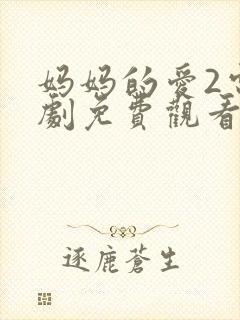 妈妈的愛2
劇免費觀看
逐鹿蒼生